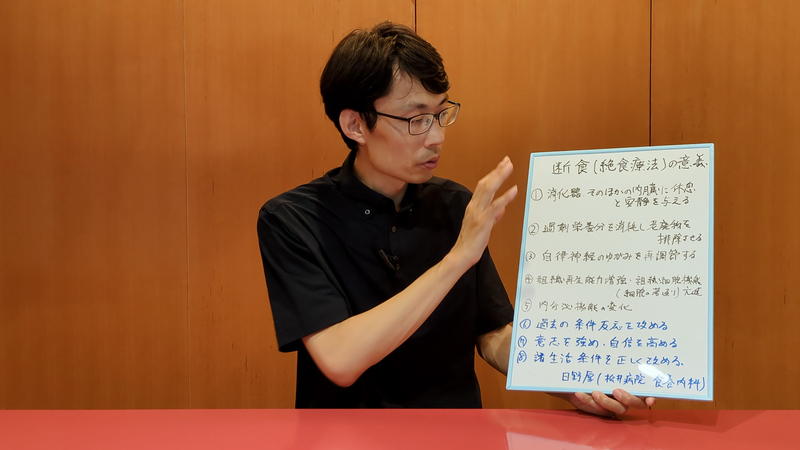 断食(絶食療法)の意義
① 消化器、そのほかの内臓に休息
と安静を与える
② 過剰栄養分を消耗し老廃物を
排除させる
③ 自律神経のゆがみを再調節する
④ 組織再生能力増強・組織細胞機能
(細胞の若返り)
⑤ 内分泌機能の変化
⑥ 過去の条件反応を改める
⑦ 意志を強め、自信を高める
⑧ 諸生活条件を正しく改める。
日野厚(松井病院 食養内科)